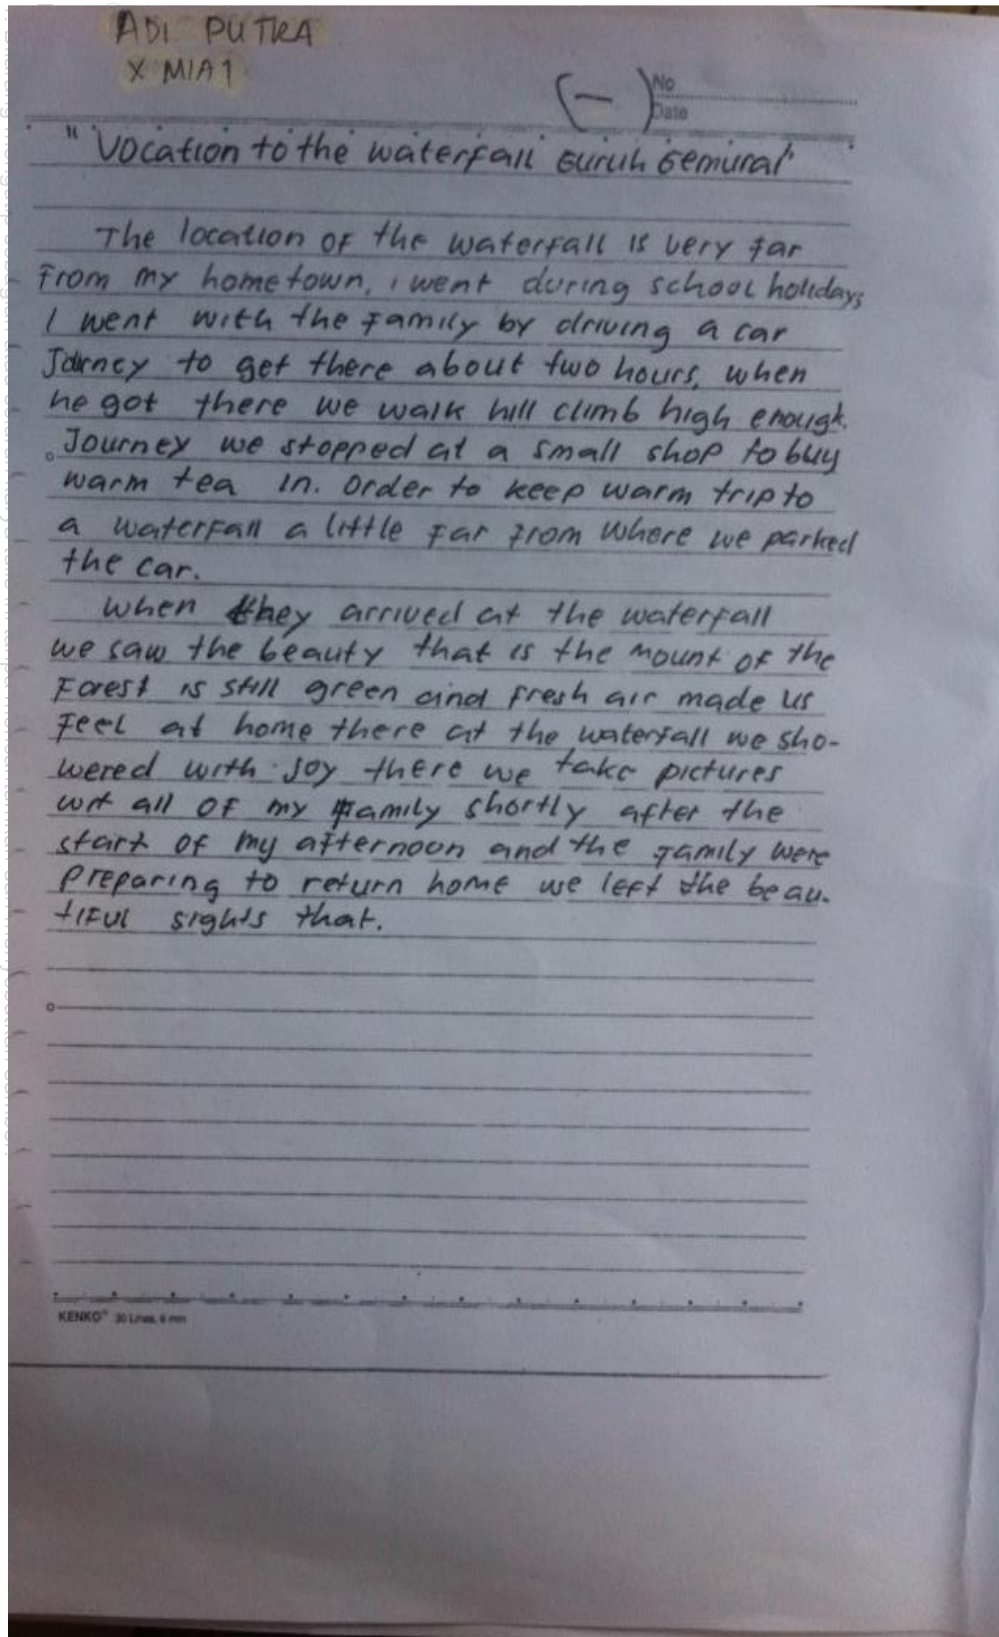 ADI PUTRA
X MIA1
(-)
No
Date
"Vocation to the waterfall Guruh Gemurai"
The location of the waterfall is very far
from my hometown, i went during school holidays
I went with the family by driving a car
Journey to get there about two hours, when
he got there we walk hill climb high enough.
Journey we stopped at a small shop to buy
warm tea in. order to keep warm trip to
a waterfall a little far from where we parked
the car.
When they arrived at the waterfall
we saw the beauty that is the mount of the
Forest is still green and fresh air made us
feel at home there at the waterfall we sho-
wered with joy there we take pictures
wit all of my family shortly after the
start of my afternoon and the family were
preparing to return home we left the beau-
tiful sights that.
KENKO® 30 Lines, 6 mm